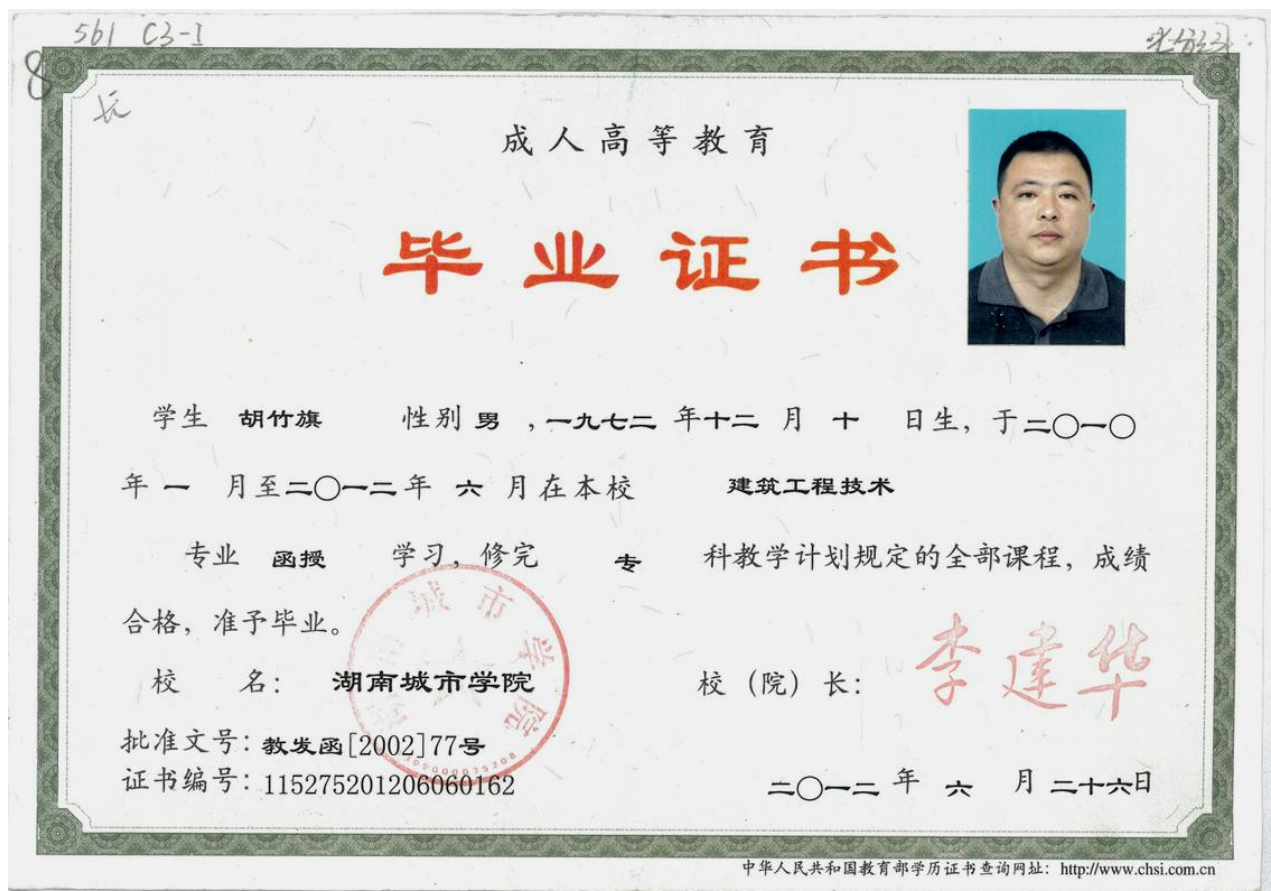 561 C3-1
8
成人高等教育
毕业证书
学生 胡竹旗 性别 男 ,一九七二 年十二 月 十 日生, 于二〇一〇
年 一 月至二〇一二年 六 月在本校 建筑工程技术
专业 函授 学习, 修完 专 科教学计划规定的全部课程, 成绩
合格, 准予毕业。
校 名: 湖南城市学院 校 (院) 长: 李建华
湖南城市学院
批准文号: 教发函[2002]77号
证书编号: 115275201206060162 二〇一二 年 六 月 二十六日
中华人民共和国教育部学历证书查询网址: http://www.chsi.com.cn